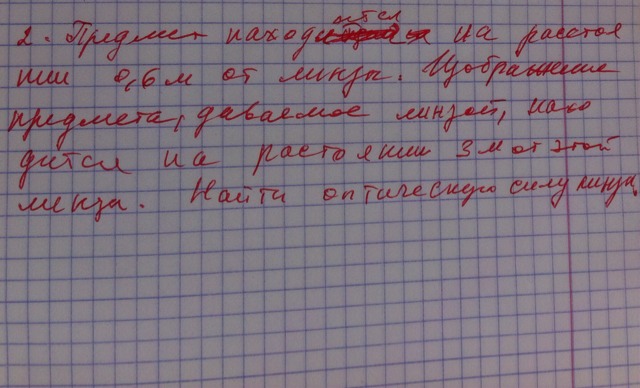 2. Предмет находится на расстоя
нии 0,6 м от линзы. Изображение
предмета, даваемое линзой, нахо
дится на растоянии 3 м от этой
линзы. Найти оптическую силу линзы.